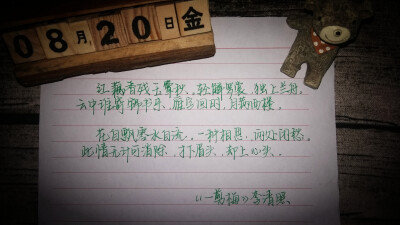 08月20日金
红藕香残玉簟秋，轻解罗裳，独上兰舟。
云中谁寄锦书来，雁字回时，月满西楼。
花自飘零水自流，一种相思，两处闲愁。
此情无计可消除，才下眉头，却上心头。
《一剪梅》李清照